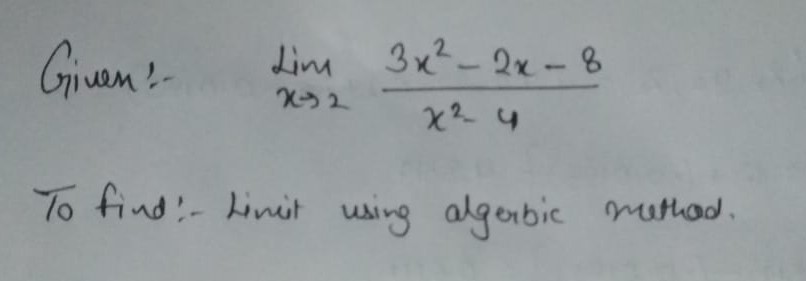 Given:- Lim 3x² - 2x - 8
x→2 x² - 4
To find:- Limit using algerbic method.